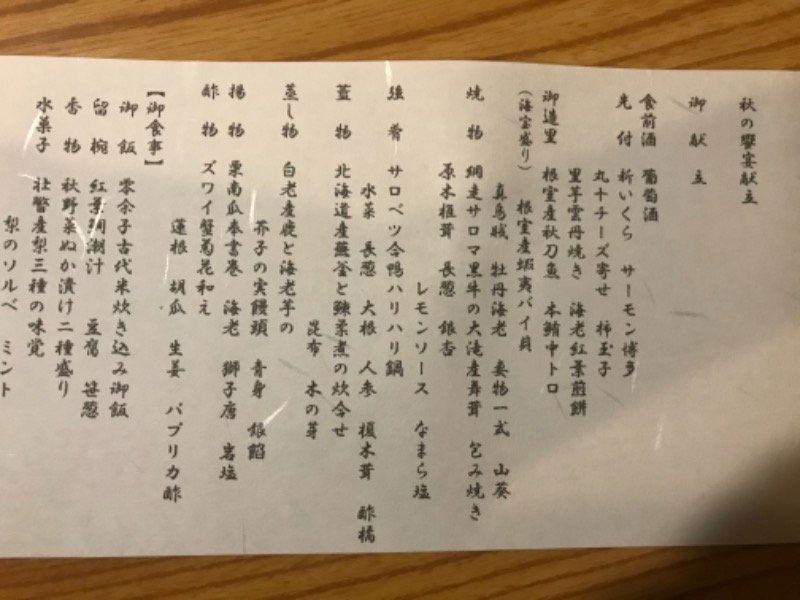 秋の饗宴献立
御献立
食前酒 葡萄酒
先付 新いくら サーモン博多
丸十チーズ寄せ 柿玉子
里芋雲丹焼き 海老紅葉煎餅
御造里 根室産秋刀魚 本鮪中トロ
(海宝盛り) 根室産蝦夷バイ貝
真烏賊 牡丹海老 妻物一式 山葵
焼物 網走サロマ黒牛の大滝産舞茸 包み焼き
原木椎茸 長葱 銀杏
レモンソース なまら塩
強肴 サロベツ合鴨ハリハリ鍋
水菜 長葱 大根 人参 榎木茸 酢橘
蓋物 北海道産蕪釜と鰊柔煮の炊合せ
昆布 木の芽
蒸し物 白老産鹿と海老芋の
芥子の実饅頭 青身 銀餡
揚物 栗南瓜奉書巻 海老 獅子唐 岩塩
酢物 ズワイ蟹菊花和え
蓮根 胡瓜 生姜 パプリカ酢
【御食事】
御飯 零余子古代米炊き込み御飯
留椀 紅葉鯛潮汁 豆腐 笹葱
香物 秋野菜ぬか漬け二種盛り
水菓子 壮瞥産梨三種の味覚
梨のソルベ ミント